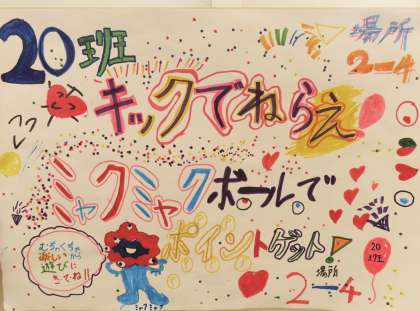 20班
場所
2-4
キックでねらえ
ミャクミャクボールで
ポイントゲット!
むちゃくちゃ
楽しいから
遊びに
きてね!!
ミャクミャク
場所
2-4
20
班